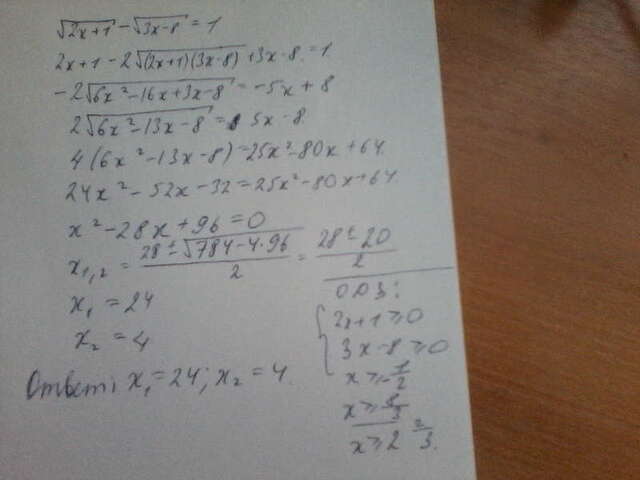 √(2x+1) - √(3x-8) = 1
2x+1 - 2√((2x+1)(3x-8)) + 3x-8 = 1
-2√(6x²-16x+3x-8) = -5x+8
2√(6x²-13x-8) = 5x-8
4(6x²-13x-8) = 25x²-80x+64
24x²-52x-32 = 25x²-80x+64
x²-28x+96=0
x₁,₂ = (28±√(784-4·96))/2 = (28±20)/2
x₁ = 24
x₂ = 4
Ответ: x₁=24; x₂=4.
ОДЗ:
{2x+1≥0
3x-8≥0
x≥-1/2
x≥8/3
x≥2 2/3.